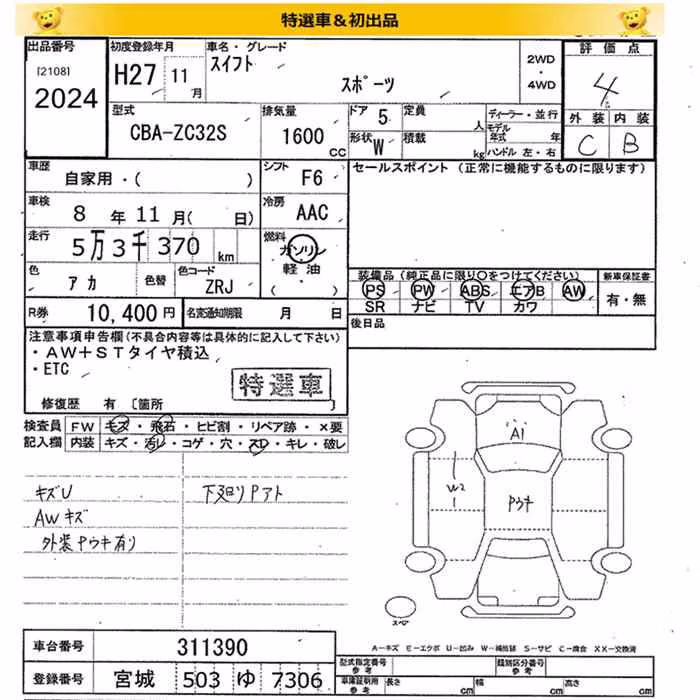 特選車＆初出品
出品番号
[2108]
2024
初度登録年月
H27 11月
車名・グレード
スイフト
スポーツ
2WD
・
4WD
評価点
4
外装 内装
C B
型式
CBA-ZC32S
排気量
1600 CC
ドア 5
定員 人
形状 W
積載 kg
ディーラー・並行
モデル年式 年
ハンドル 左・右
車歴
自家用・( )
シフト F6
セールスポイント (正常に機能するものに限ります)
車検 8年 11月( 日)
冷房 AAC
走行 5万3千370 km
燃料
ガソリン
軽油
( )
色 アカ
色替
色コード ZRJ
装備品(純正品に限り○をつけてください)
PS PW ABS エアB AW
SR ナビ TV カワ
新車保証書
有・無
R券 10,400円
名変通知期限 月 日
後日品
注意事項申告欄(不具合内容等は具体的に記入して下さい)
・AW+STタイヤ積込
・ETC
特選車
修復歴 有 〔箇所 〕
検査員記入欄
FW キズ・飛石・ヒビ割・リペア跡・×要
内装 キズ・汚レ・コゲ・穴・スレ・キレ・破レ
キズU
下廻りPアト
AWキズ
外装Pウキ有り
A1
W2
Pウキ
スペア
A－キズ E－エクボ U－凹み W－補修跡 S－サビ C－腐食 XX－交換済
車台番号 311390
登録番号 宮城 503 ゆ 7306
型式指定番号 参考
類別区分番号 参考
車庫証明用 参考
長さ cm 幅 cm 高さ cm